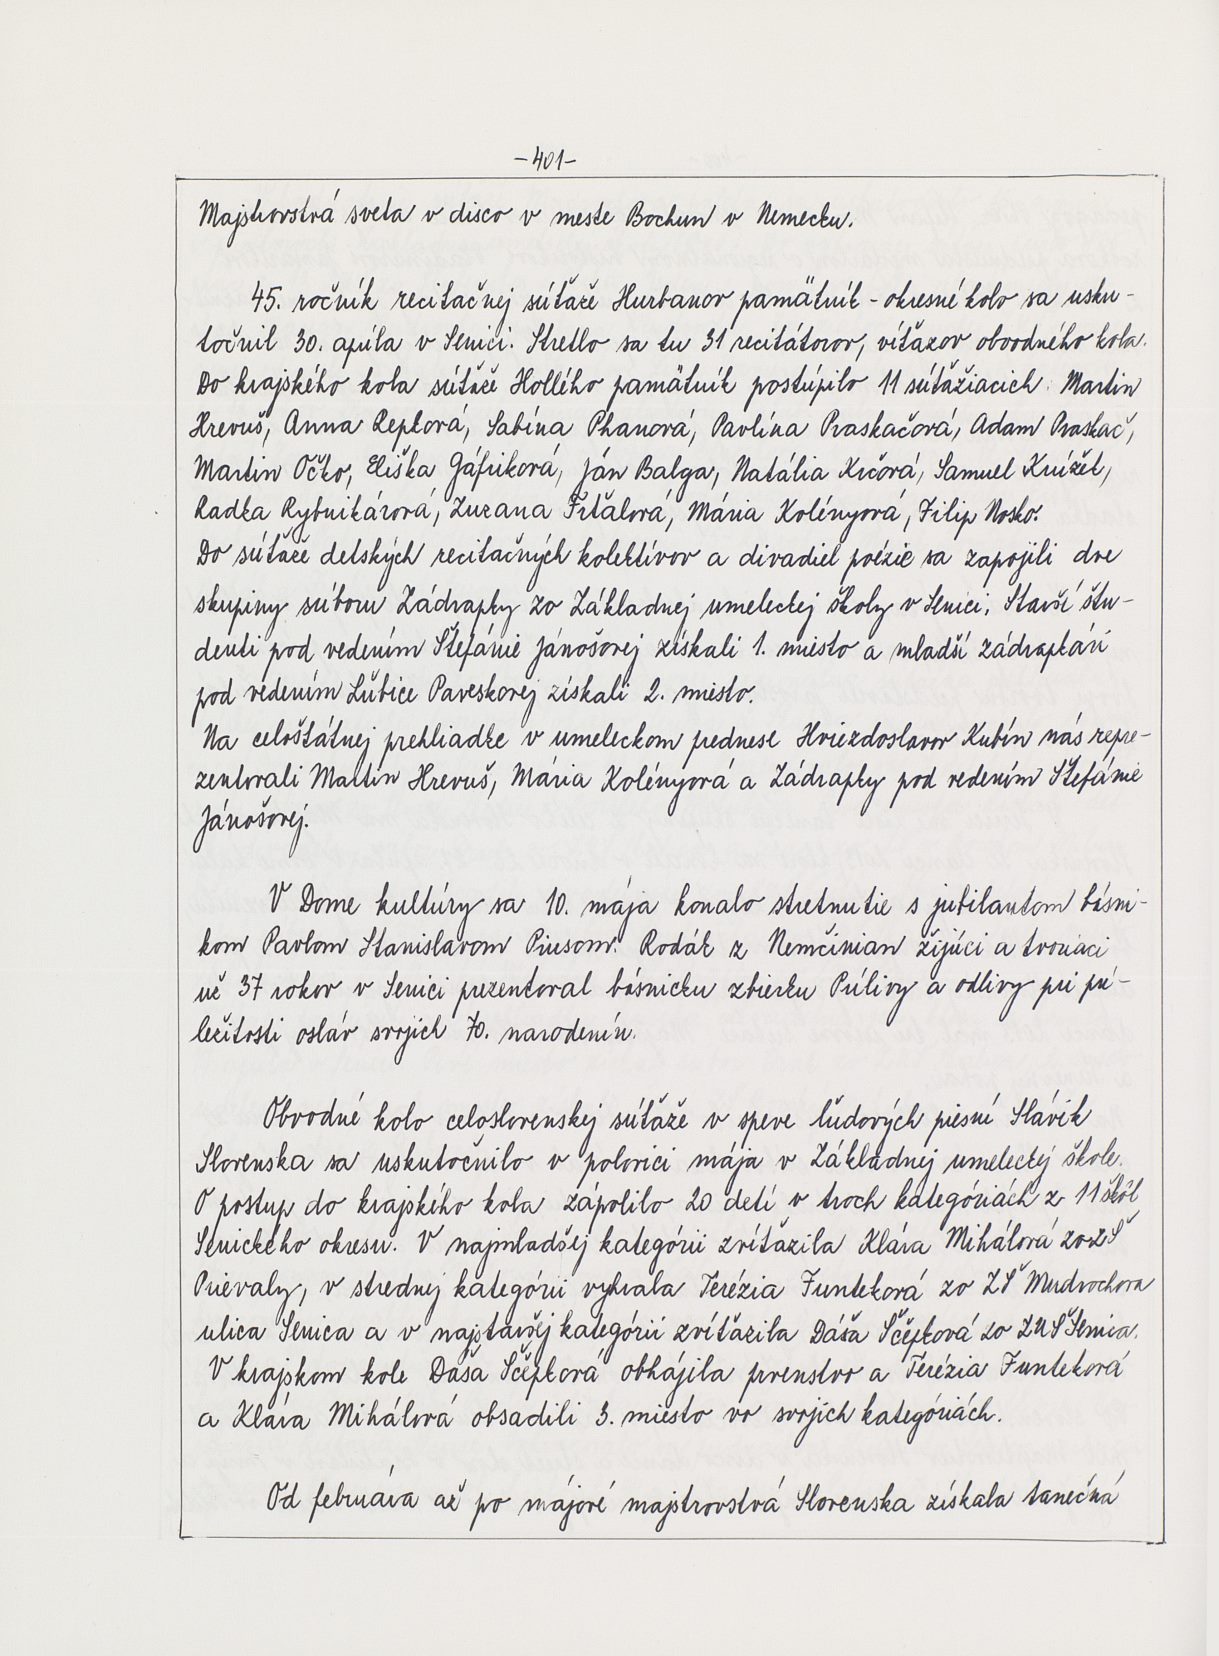 -401-
Majstrovstvá sveta v disco v meste Bochum v Nemecku.
45. ročník recitačnej súťaže Hurbanov pamätník - okresné kolo sa usku-
točnil 30. apríla v Senici. Stretlo sa tu 31 recitátorov, víťazov obvodného kola.
Do krajského kola súťaže Hollého pamätník postúpilo 11 súťažiacich: Martin
Hrevuš, Anna Repková, Sabína Phanová, Pavlína Praskačová, Adam Praskač,
Martin Očko, Eliška Gáfriková, Ján Balga, Natália Krčová, Samuel Knížel,
Radka Rybnikárová, Zuzana Frťalová, Mária Kolényová, Filip Nosko.
Do súťaže detských recitačných kolektívov a divadiel poézie sa zapojili dve
skupiny súboru Zádrapky zo Základnej umeleckej školy v Senici. Starší štu-
denti pod vedením Štefánie Jánošovej získali 1. miesto a mladší zádrapkári
pod vedením Ľubice Paveskovej získali 2. miesto.
Na celoštátnej prehliadke v umeleckom prednese Hviezdoslavov Kubín nás repre-
zentovali Martin Hrevuš, Mária Kolényová a Zádrapky pod vedením Štefánie
Jánošovej.
V Dome kultúry sa 10. mája konalo stretnutie s jubilantom básni-
kom Pavlom Stanislavom Piusom. Rodák z Nemčinian žijúci a tvoriaci
už 37 rokov v Senici prezentoval básnicku zbierku Prílivy a odlivy pri prí-
ležitosti osláv svojich 70. narodenín.
Obvodné kolo celoslovenskej súťaže v speve ľudových piesní Slávik
Slovenska sa uskutočnilo v polovici mája v Základnej umeleckej škole.
O postup do krajského kola zápolilo 20 detí v troch kategóriách z 11 škôl
Senického okresu. V najmladšej kategórii zvíťazila Klára Mihálová zo ZŠ
Prievaly, v strednej kategórii vyhrala Terézia Funteková zo ZŠ Mudrochova
ulica Senica a v najstaršej kategórii zvíťazila Dáša Sčepková zo ZUŠ Senica.
V krajskom kole Dáša Sčepková obhájila prvenstvo a Terézia Funteková
a Klára Mihálová obsadili 3. miesto vo svojich kategóriách.
Od februára až po májové majstrovstvá Slovenska získala tanečná